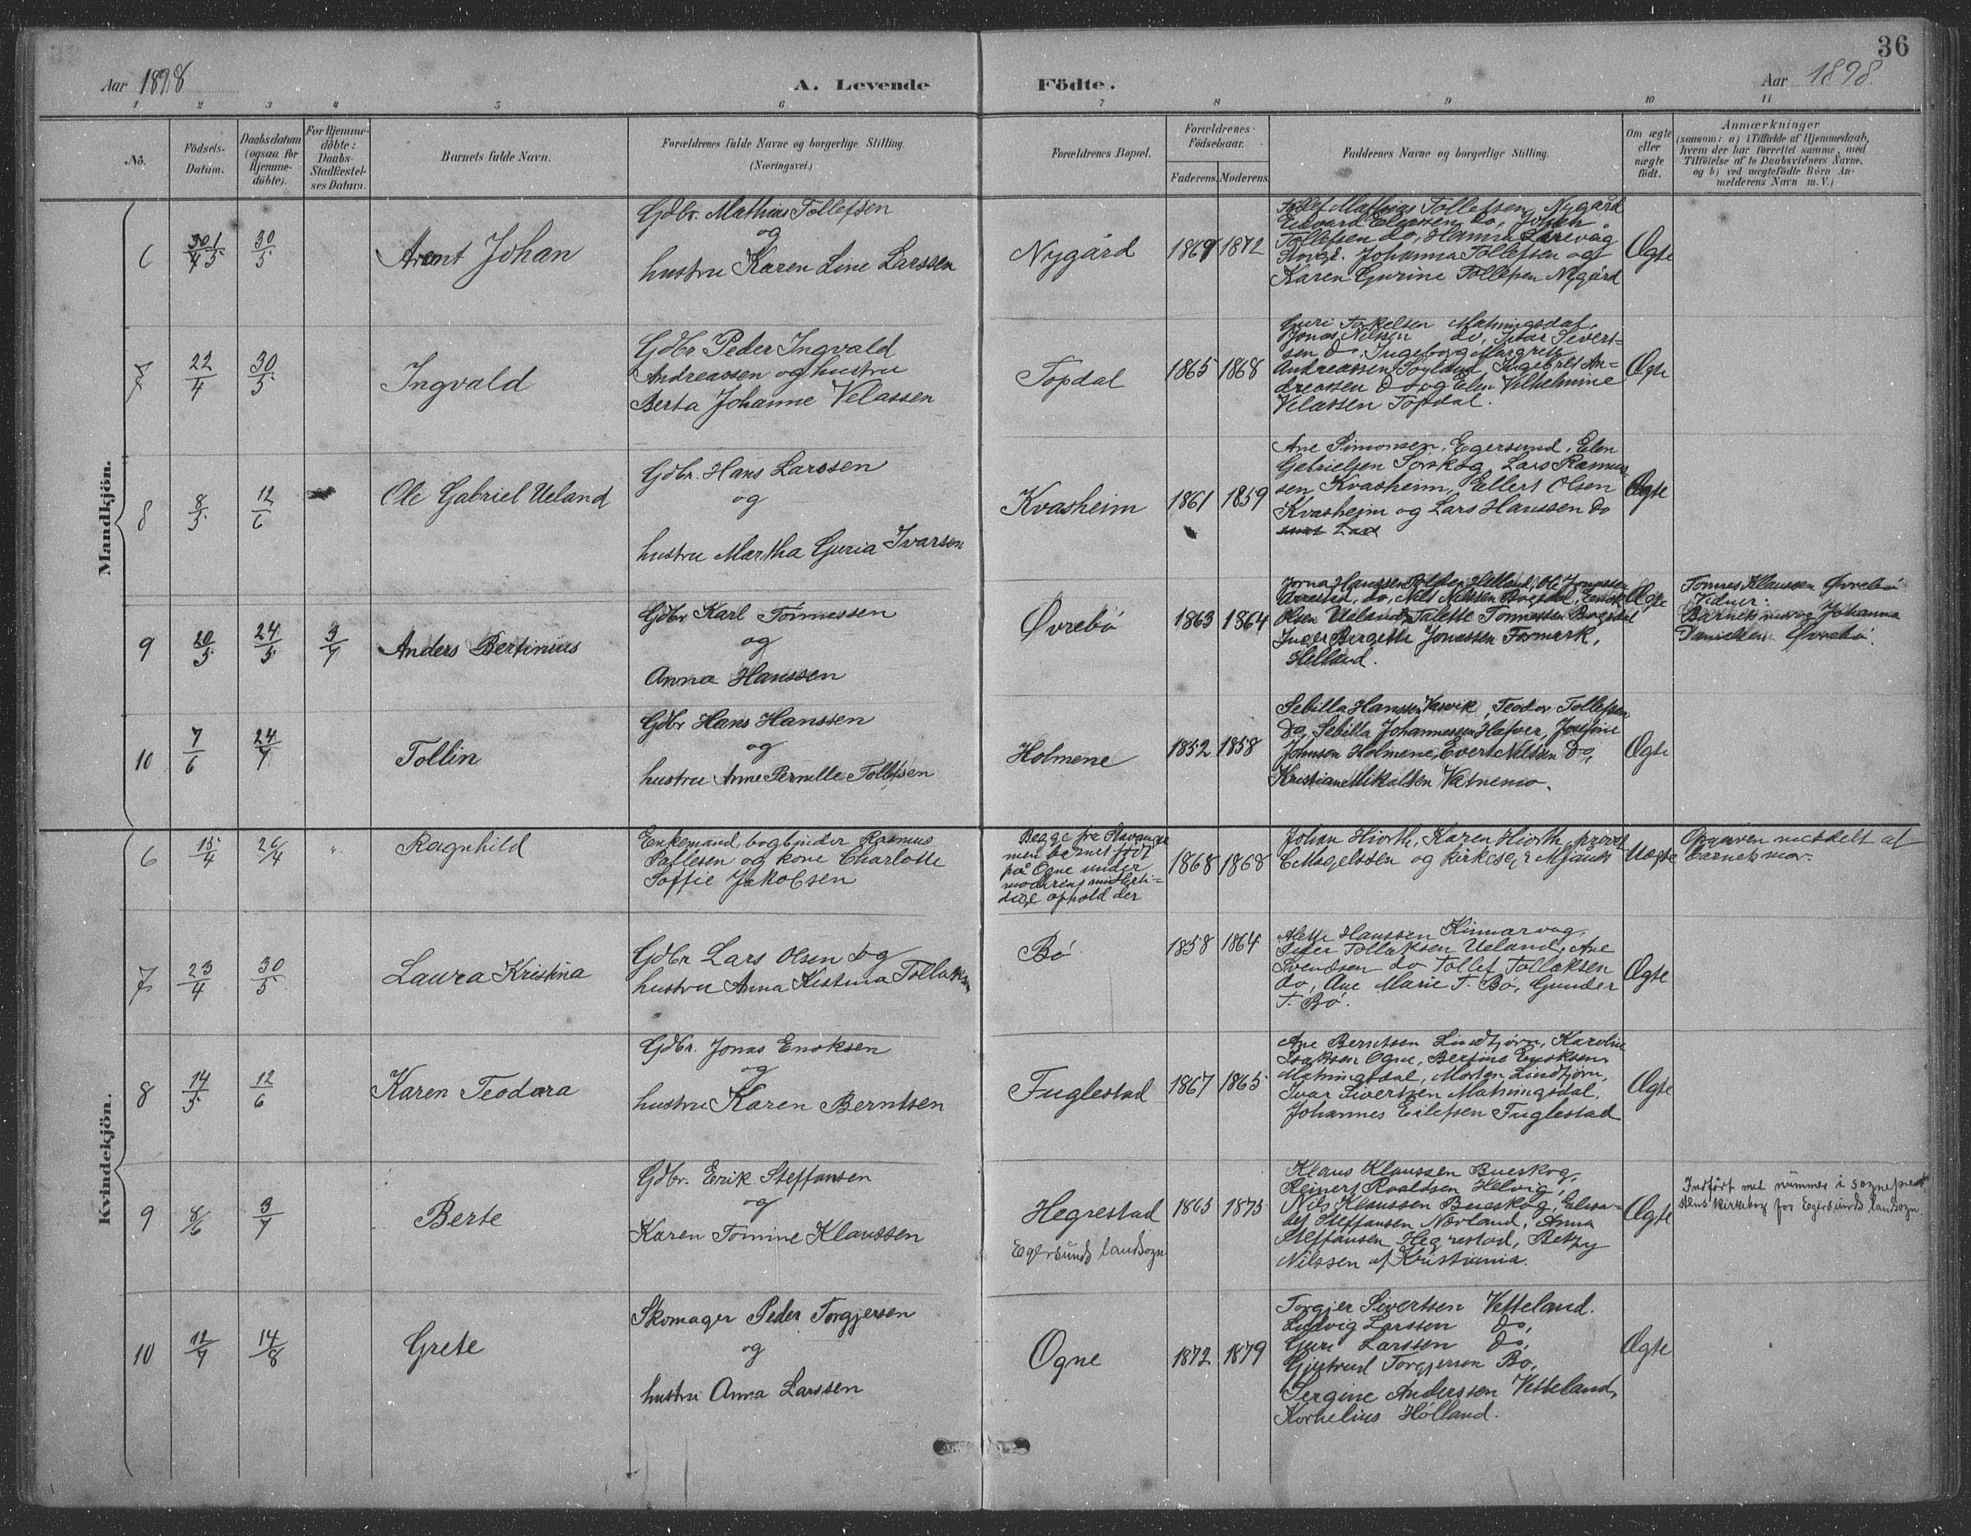 36
Aar 1898
A. Levende Födte.
Aar 1898.
1 2 3 4 5 6 7 8 9 10 11
No.
Födsels-Datum.
Daabsdatum (ogsaa for Hjemme-döbte).
For Hjemme-döbte: Daabs-Stadfæstel-ses Datum.
Barnets fulde Navn.
Forældrenes fulde Navne og borgerlige Stilling.
(Næringsvei.)
Forældrenes Bopæl.
Forældrenes Födselsaar.
Faderens. Moderens.
Faddernes Navne og borgerlige Stilling.
Om ægte eller uægte födt.
Anmærkninger
(saasom: a) i Tilfælde af Hjemmedaab,
hvem der har forrettet samme, med
Tilföielse af to Daabsvidners Navne,
og b) ved uægtefödte Börn An-
melderens Navn m. V.)
Mandkjön.
6
30/5
Arent Johan
Gdbr. Mathias Tollefsen
og
hustru Karen Line Larssen
Nygård
1872
Tollef Mathias Tollefsen Nygård
Edvard Eliassen do, Johan
Tollefsen do, Hanna
Johanna Tollefsen og
Karen Gurine Tollefsen Nygård
Ægte
7
22/4
30/5
Ingvald
Gdbr. Peder Ingvald
Andreassen og hustru
Berta Johanne Velassen
Topdal
1865 1868
Guri Torkelsen Matningsdal,
Jonas Nilsen do, Ivar Sivert-
sen do, Ingeborg Margrete
Andreassen Ingebret An-
dreassen do og Elen Vilhelmine
Velassen Topdal.
Ægte
8
8/5
12/6
Ole Gabriel Ueland
Gdbr. Hans Larssen
og
hustru Martha Guria Ivarsen
Kvasheim
1861 1859
Ane Simonsen, Egersund, Elen
Gabrielsen Lars Rasmus
sen Kvasheim, Ellert Olsen
Kvasheim og Lars Hanssen do
Ægte
9
20/5
24/5
3/7
Anders Bertinius
Gdbr. Karl Tonnessen
og
Anna Hanssen
Øvrebø
1863 1864
Jonassen
do, Nils Nilssen
Olsen Ueland, Talette Tonnessen
Inger Bergette Jonassen
Helland.
Ægte
Tonnes Klaussen Øvrebø
Vidner:
Barnets mor og Johanna
Øvrebø.
10
7/6
24/7
Tollin
Gdbr Hans Hanssen
og
hustru Anne Pernille Tollefsen
Holmene
1852 1858
Sebilla Hanssen Teodor Tollefsen
Do, Sebilla Johannessen Josefine
Johnsen Holmene, Evert Nilssen Do,
Kristiane Mikalsen Vatnemo.
Ægte
Kvindekjön.
6
15/4
26/4
"
Ragnhild
Enkemand, bogbinder Rasmus
og kone Charlotte
Soffie Jakobsen
Begge fra Stavanger
men barnet født
på Ogne under
moderens midlerti-
dige ophold der
1868 1868
Johan Hiorth, Karen Hiorth, provst
C Magelssen og kirkes.
Uægte
Opgaven meddelt af
barnets mor.
7
23/4
30/5
Laura Kristina
Gdbr Lars Olsen og
hustru Anna Kistina Tollaksen
Bø
1858 1864
Alette Hanssen Kinnarvåg,
Tollaksen Ueland, Ane
Svendsen do Tollef Tollaksen
do, Ane Marie T. Bø, Gunder
T. Bø.
Ægte
8
14/5
12/6
Karen Teodora
Gdbr. Jonas Enoksen
og
hustru Karen Berntsen
Fuglestad
1867 1865
Ane Berntsen Lindtjørn, Karoline
Isaksen Ogne, Bertine Enoksen
Matningsdal, Morten Lindtjørn,
Ivar Sivertsen Matningsdal,
Johannes Eilefsen Fuglestad
Ægte
9
8/6
3/7
Berte
Gdbr. Erik Steffansen
og
Karen Tomine Klaussen
Hegrestad
Egersunds landsogn
1865 1875
Klaus Klaussen Bueskog,
Reinert Roaldsen Helvig,
Nils Klaussen Bueskog, Elisa-
bet Steffansen Nærland, Anna
Steffansen Hegrestad, Betzy
Nilssen af Kristiania.
Ægte
Indført med nummer i sognepræ-
stens kirkebog for Egersunds landsogn
10
12/7
14/8
Grete
Skomager Peder Torgjersen
og
hustru Anna Larssen
Ogne
1872 1879
Torgjer Sivertsen Vetteland.
Ludvig Larssen do,
Guri Larssen do,
Gjertrud Torgjersen Bø,
Sergine Anderssen Vetteland,
Kornelius Hølland.
Ægte